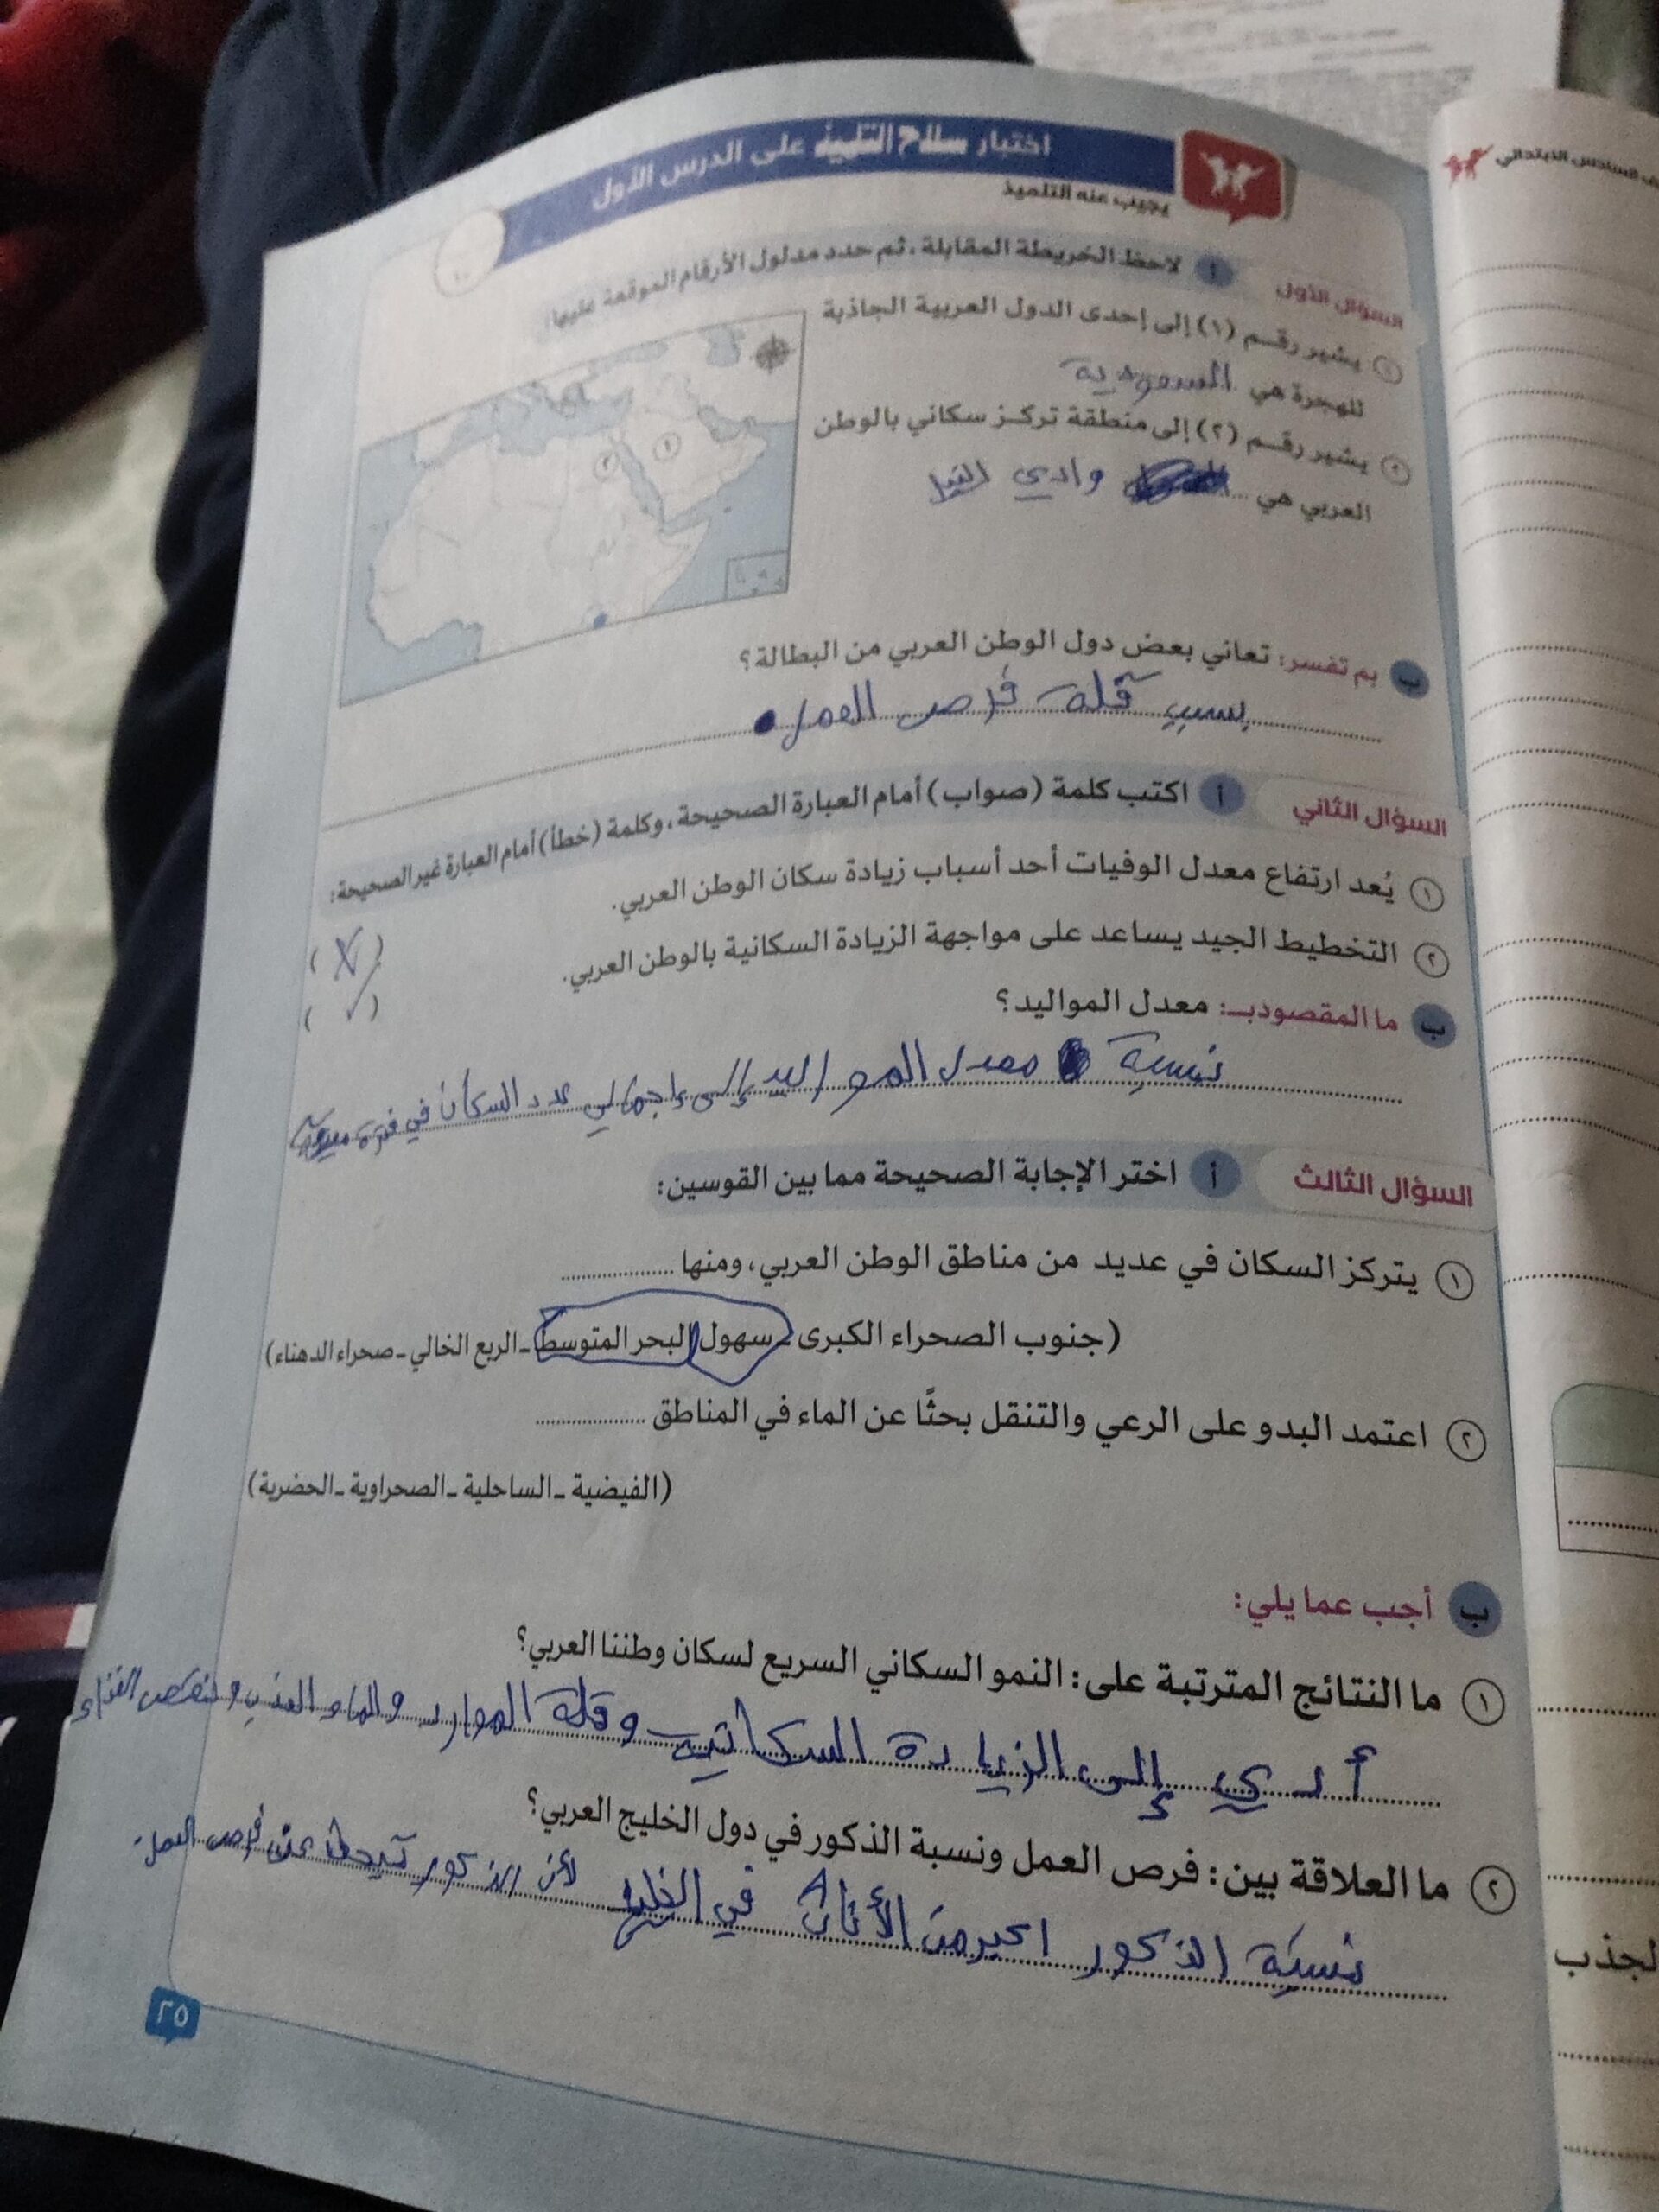 اختبار سلاح التلميذ على الدرس الأول
يجيب عنه التلميذ
١٠
السؤال الأول
أ لاحظ الخريطة المقابلة، ثم حدد مدلول الأرقام الموقعة عليها:
١ يشير رقم (١) إلى إحدى الدول العربية الجاذبة
للهجرة هي السعودية
٢ يشير رقم (٢) إلى منطقة تركز سكاني بالوطن
العربي هي ... وادي النيل
١
٢
ب بم تفسر: تعاني بعض دول الوطن العربي من البطالة؟
بسبب قلة فرص العمل
السؤال الثاني
أ اكتب كلمة (صواب) أمام العبارة الصحيحة، وكلمة (خطأ) أمام العبارة غير الصحيحة:
١ يُعد ارتفاع معدل الوفيات أحد أسباب زيادة سكان الوطن العربي.
(X)
٢ التخطيط الجيد يساعد على مواجهة الزيادة السكانية بالوطن العربي.
(✓)
ب ما المقصود بـ: معدل المواليد؟
نسبة معدل المواليد إلى إجمالي عدد السكان في فترة معينة
السؤال الثالث
أ اختر الإجابة الصحيحة مما بين القوسين:
١ يتركز السكان في عديد من مناطق الوطن العربي، ومنها ..........
(جنوب الصحراء الكبرى - سهول البحر المتوسط - الربع الخالي - صحراء الدهناء)
٢ اعتمد البدو على الرعي والتنقل بحثًا عن الماء في المناطق ..........
(الفيضية - الساحلية - الصحراوية - الحضرية)
ب أجب عما يلي:
١ ما النتائج المترتبة على: النمو السكاني السريع لسكان وطننا العربي؟
أدي إلى الزيادة السكانية وقلة الموارد والماء العذب ونقص الغذاء
٢ ما العلاقة بين: فرص العمل ونسبة الذكور في دول الخليج العربي؟
نسبة الذكور اكبر من الأناث في الخليج لأن الذكور تبحث عن فرص العمل
٢٥
السادس الابتدائي
لجذب